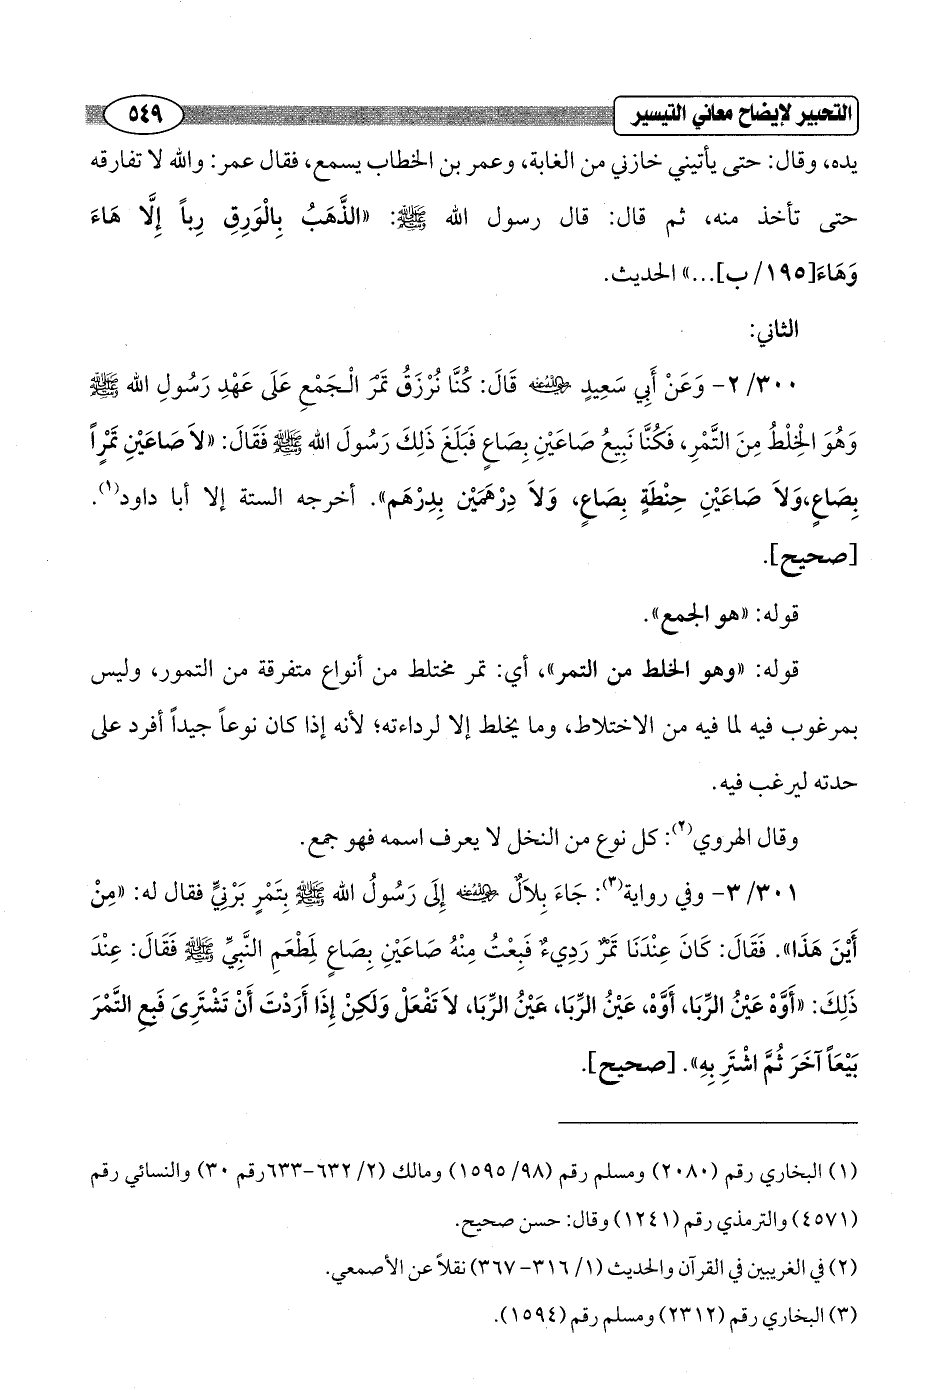 التحبير لإيضاح معاني التيسير
٥٤٩
يده، وقال: حتى يأتيني خازني من الغابة، وعمر بن الخطاب يسمع، فقال عمر: والله لا تفارقه
حتى تأخذ منه، ثم قال: قال رسول الله ﷺ: «الذَّهَبُ بِالْوَرِقِ رِباً إِلَّا هَاءَ
وَهَاءَ[١٩٥/ ب]...» الحديث.
الثاني:
٣٠٠/ ٢- وَعَنْ أَبِي سَعِيدٍ رضي الله عنه قَالَ: كُنَّا نُرْزَقُ تَمْرَ الْجَمْعِ عَلَى عَهْدِ رَسُولِ الله ﷺ
وَهُوَ الْخِلْطُ مِنَ التَّمْرِ، فَكُنَّا نَبِيعُ صَاعَيْنِ بِصَاعٍ فَبَلَغَ ذَلِكَ رَسُولَ الله ﷺ فَقَالَ: «لاَ صَاعَيْنِ تَمْراً
بِصَاعٍ،وَلاَ صَاعَيْنِ حِنْطَةٍ بِصَاعٍ، وَلاَ دِرْهَمَيْنِ بِدِرْهَم». أخرجه الستة إلا أبا داود(١).
[صحيح].
قوله: «هو الجمع».
قوله: «وهو الخلط من التمر»، أي: تمر مختلط من أنواع متفرقة من التمور، وليس
بمرغوب فيه لما فيه من الاختلاط، وما يخلط إلا لرداءته؛ لأنه إذا كان نوعاً جيداً أفرد على
حدته ليرغب فيه.
وقال الهروي(٢): كل نوع من النخل لا يعرف اسمه فهو جمع.
٣٠١/ ٣- وفي رواية(٣): جَاءَ بِلاَلٌ رضي الله عنه إِلَى رَسُولُ الله ﷺ بِتَمْرٍ بَرْنِيٍّ فقال له: «مِنْ
أَيْنَ هَذَا». فَقَالَ: كَانَ عِنْدَنَا تَمْرٌ رَدِيءٌ فَبِعْتُ مِنْهُ صَاعَيْنِ بِصَاعٍ لِمَطْعَمِ النَّبِيِّ ﷺ فَقَالَ: عِنْدَ
ذَلِكَ: «أَوَّهْ عَيْنُ الرِّبَا، أَوَّهْ، عَيْنُ الرِّبَا، عَيْنُ الرِّبَا، لاَ تَفْعَلْ وَلَكِنْ إِذَا أَرَدْتَ أَنْ تَشْتَرِىَ فَبِعِ التَّمْرَ
بَيْعَاً آخَرَ ثُمَّ اشْتَرِ بِهِ». [صحيح].
(١) البخاري رقم (٢٠٨٠) ومسلم رقم (٩٨/ ١٥٩٥) ومالك (٢/ ٦٣٢-٦٣٣رقم ٣٠) والنسائي رقم
(٤٥٧١) والترمذي رقم (١٢٤١) وقال: حسن صحيح.
(٢) في الغريبين في القرآن والحديث (١/ ٣١٦-٣٦٧) نقلاً عن الأصمعي.
(٣) البخاري رقم (٢٣١٢) ومسلم رقم (١٥٩٤).